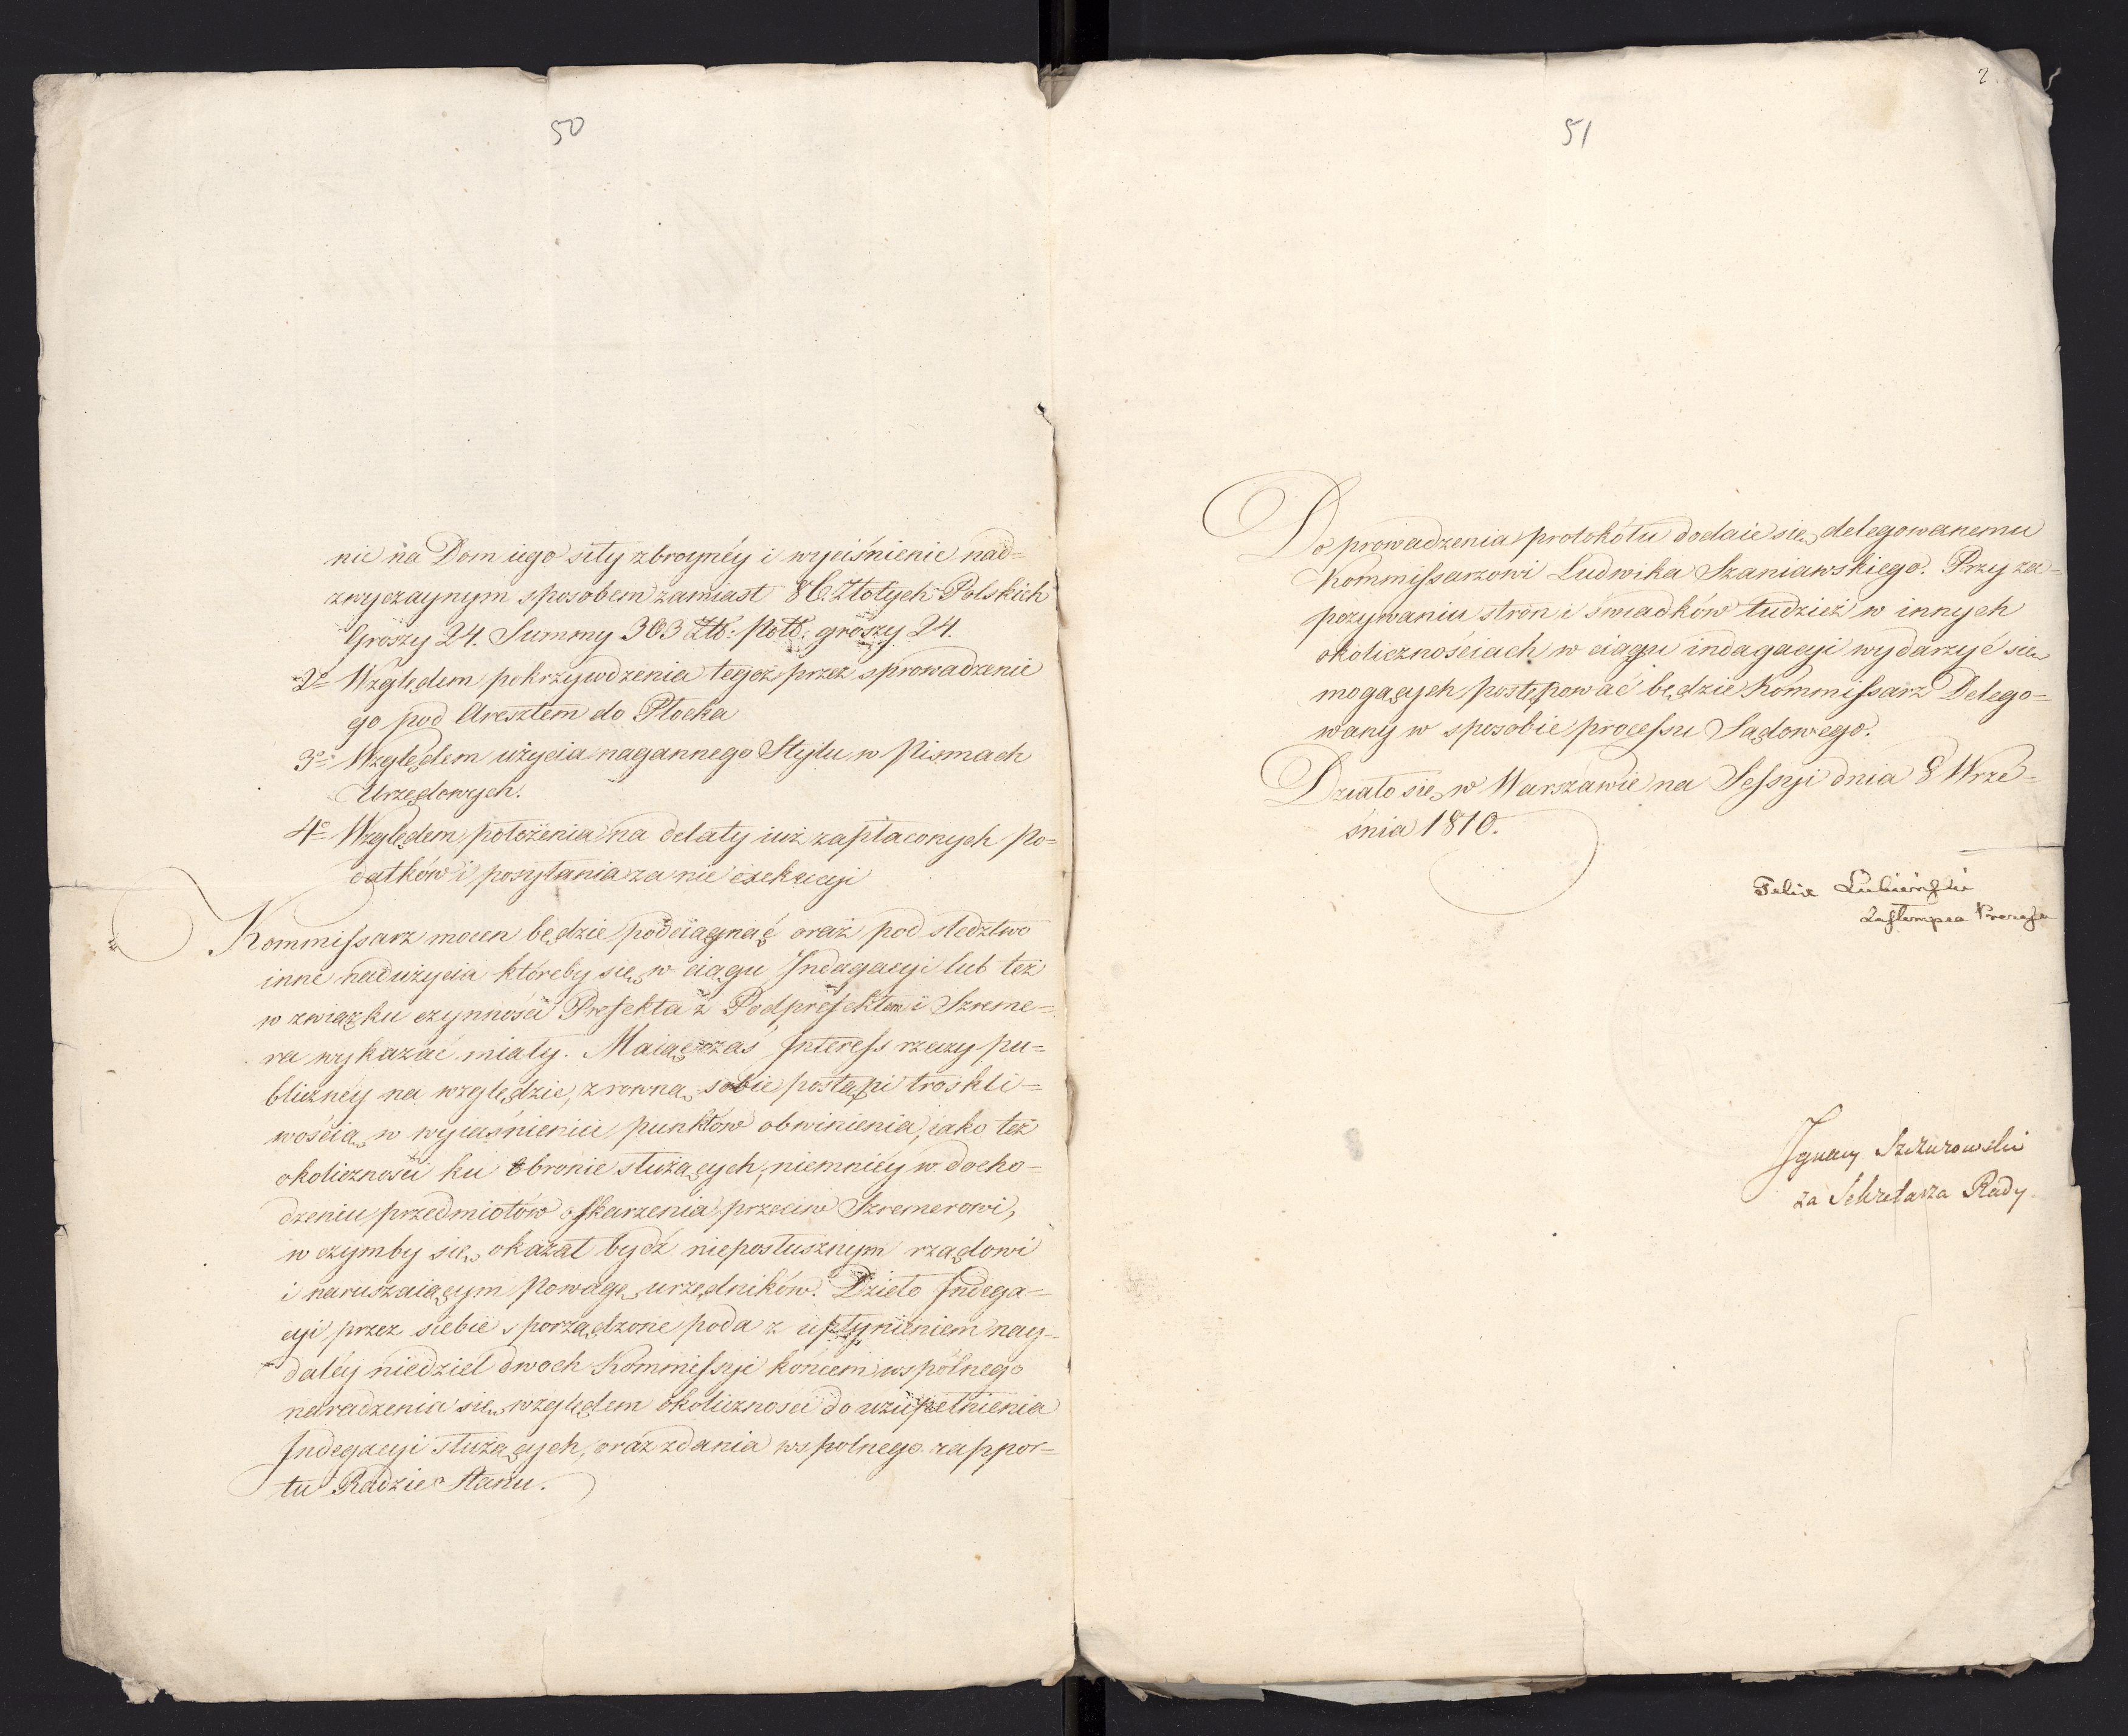 50
nie na Dom iego siły zbroynéy i wyciśnienie nad=
zwyczaynym sposobem zamiast 86. Złotych Polskich
Groszy 24. Summy 303 Złł: Poll: groszy 24.
2o Względem pokrzywdzenia tegoż przez sprowadzenie
go pod Aresztem do Płocka
3o Względem użycia nagannego Stylu w Pismach
Urzędowych.
4o Względem położenia na delaty iuż zapłaconych Po=
datków i posyłania za nie exekucyi
Kommissarz mocen będzie podciągnąć oraz pod sledztwo
inne nadużycia któreby się w ciągu Indagacyi lub też
w związku czynności Prefekta z Podprefektem i Szreme=
ra wykazać miały. Maiąc zaś Interess rzeczy pu=
bliczney na względzie, z rowną sobie postąpi troskli=
wością w wyiaśnieniu punktów obwinienia, iako też
okoliczności ku obronie służących, niemniéy w docho=
dzeniu przedmiotów oskarzenia przeciw Szremerowi,
w czymby się okazał bydź nieposłusznym rządowi
i naruszaiącym Powagę urzędników. Dzieło Indega=
cyi przez siebie sporządzone poda z upłynieniem nay=
daléy niedziel dwoch Kommissyi końcem wspólnego
naradzenia się względem okoliczności do uzupełnienia
Indegacyi służących, oraz zdania wspolnego rappor=
tu Radzie Stanu.
2.
51
Do prowadzenia protokółu dodaie się delegowanemu
Kommissarzowi Ludwika Szaniawskiego. Przy za=
pozywaniu stron i świadków tudzież w innych
okolicznościach w ciągu indagacyi wydarzyć się
mogących postępować będzie Kommissarz Delego=
wany w sposobie processu Sądowego.
Działo się w Warszawie na Sessyi dnia 8 Wrze=
śnia 1810.
Felix Łubieński
Zastempca Prezesa
Ignacy Szczurowski
za Sekretarza Rady